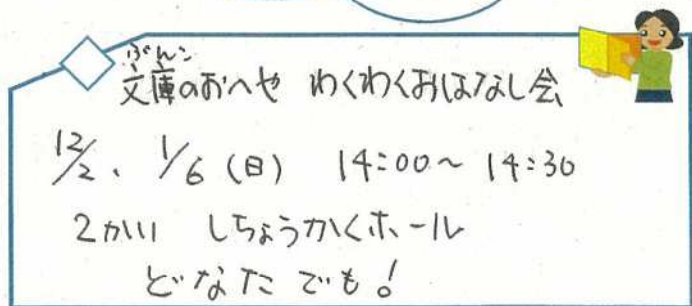 ぶんこ
文庫のおへや わくわくおはなし会
12/2、 1/6 (日) 14:00～ 14:30
2かい しちょうかくホール
どなたでも!